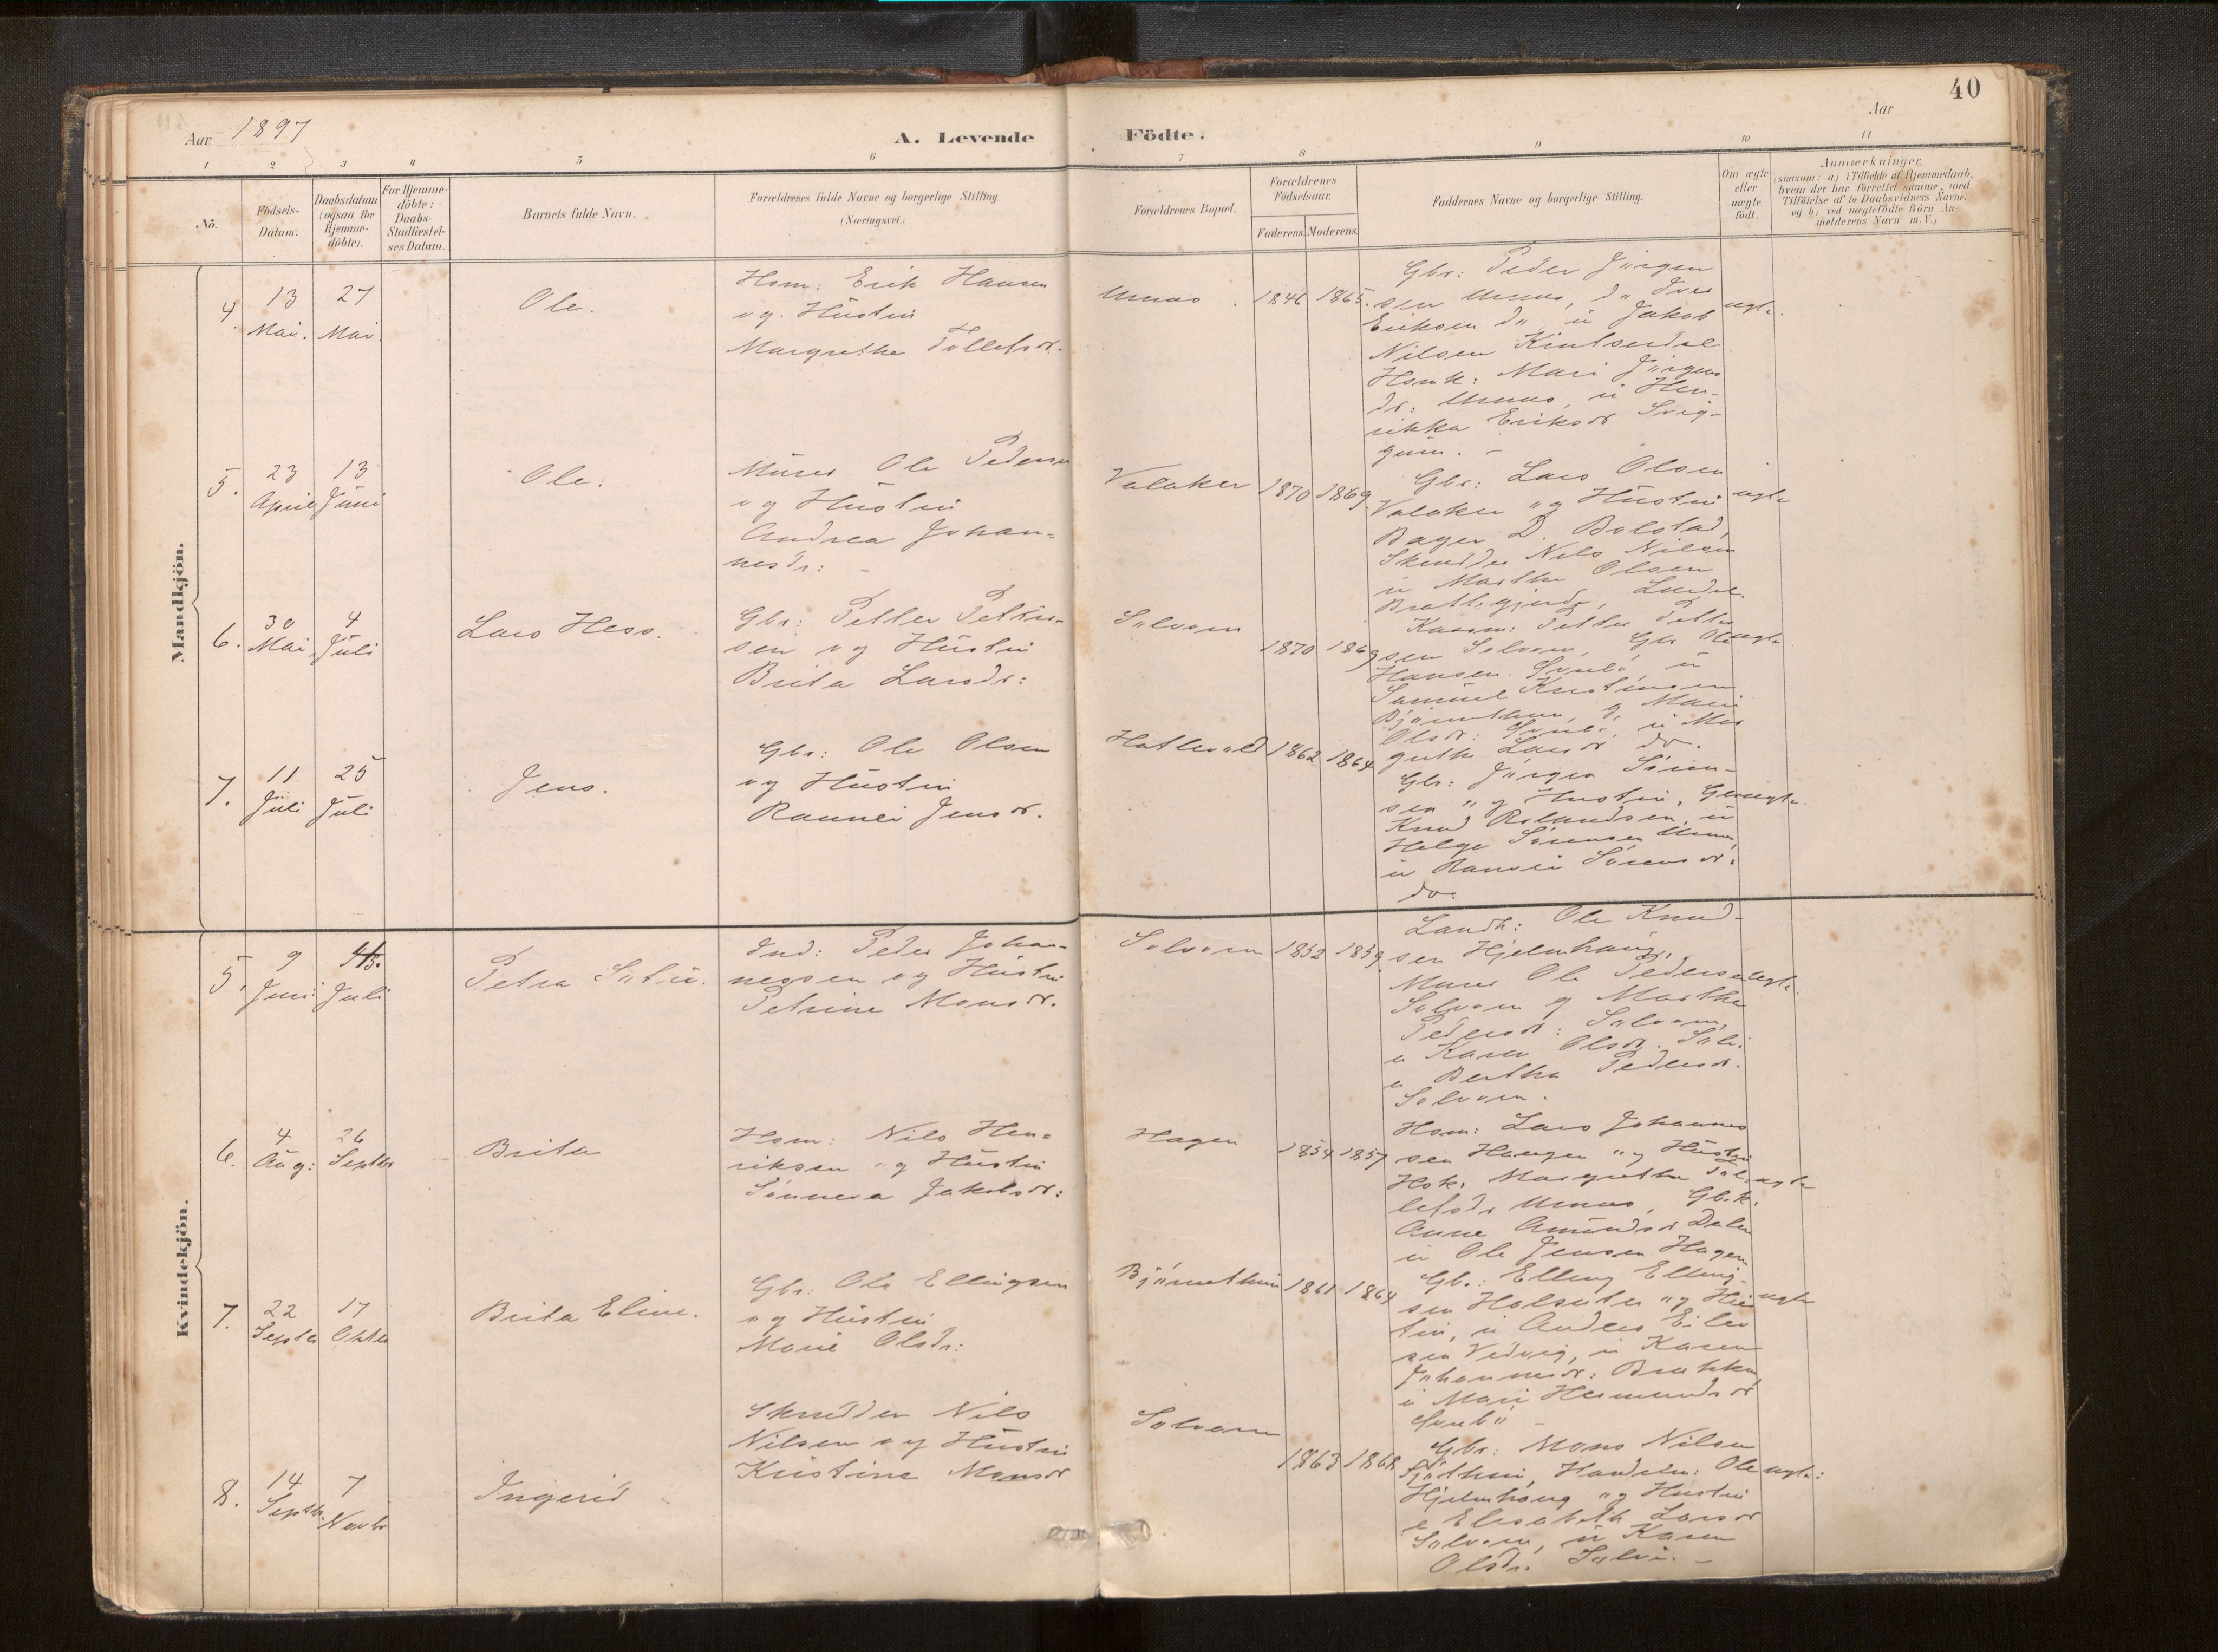 40
Aar 1897
A. Levende Födte.
Aar
1 2 3 4 5 6 7 8 9 10 11
No.
Födsels-
Datum.
Daabsdatum
(ogsaa for
Hjemme-
döbte).
For Hjemme-
döbte:
Daabs-
Stadfæstel-
ses Datum.
Barnets fulde Navn.
Forældrenes fulde Navne og borgerlige Stilling
(Næringsvei.)
Forældrenes Bopæl.
Forældrenes
Födselsaar.
Faderens. Moderens.
Faddernes Navne og borgerlige Stilling.
Om ægte
eller
uægte
födt.
Anmærkninger
(saasom: a) i Tilfælde af Hjemmedaab,
hvem der har forrettet samme, med
Tilföielse af to Daabsvidners Navne.
og b) ved uægtefödte Börn An-
melderens Navn m. V.)
Mandkjön.
4.
13
Mai.
27
Mai.
Ole.
Hsm: Erik Hansen
og Hustru
Margrethe Tollefsdr.
Urnæs
1846 1865.
Gbr: Peder Jörgen
sen Urnæs, do Iver
Eriksen do u Jakob
Nilsen
Hsmk: Mari Jörgens
dr: Urnæs, u Hen-
rikka Eriksdr
ægte.
5.
23
April
13
Juni
Ole.
Murer Ole Pedersen
og Hustru
Andrea Johan-
nesdr: -
Volaker
1870 1869.
Gbr: Lars Olsen
Volaker og Hustru
Bager D. Bolstad,
Skrædder Nils Nilsen
u Marthe Olsen
ægte
6.
30
Mai
4
Juli
Lars Hess.
Gbr: Petter Petter-
sen og Hustru
Brita Larsdr:
Solvorn
1870 1869
Petter Petter
sen Solvorn, Gbr Ole
Hansen
Samuel Kristensen
Mari
Olsdr:
grethe Larsdr do.
ægte
7.
11
Juli
25
Juli
Jens.
Gbr: Ole Olsen
og Hustru
Rannei Jensdr.
1862 1864
Gbr: Jörgen Sören-
sen og Hustru,
Knud Rolandsen, u
Helge Sörensen Urnæs
u Rannei Sörensdr:
do.
ægte.
Kvindekjön.
5.
9
Juni
Juli
Petra
Ind: Peder Johan-
nessen og Hustru
Petrine Monsdr.
Solvorn
1852 1859.
Landh: Ole Knud-
sen Hjelmhaug,
Murer Ole Pedersen
Solvorn og Marthe
Pedersdr: Solvorn,
u Karen Olsdr.
u Berthe Pedersdr.
Solvorn.
ægte.
6.
4
Aug:
26
Septbr
Brita
Hsm: Nils Hen-
riksen og Hustru
Sönneva Jakobsdr:
Hagen
1854 1857
Hsm: Lars Johannes
sen Haugen og Hustru
Hsk. Margrethe Tol-
lefsdr Urnæs, Gbk.
Anne Amundsdr Dalen
u Ole Jensen Hagen
ægte
7.
22
Septbr
17
Oktbr
Brita Eline.
Gbr: Ole Ellingsen
og Hustru
Marie Olsdr:
1861 1864
Gbr: Elling Elling-
sen og Hus
tru, u Anders
sen Vedvig, u Karen
Johannesdr:
u Mari Hermundsdr
ægte
8.
14
Septbr.
7
Novbr
Ingerid
Skrædder Nils
Nilsen og Hustru
Kristine Monsdr
Solvorn
1863 1868.
Gbr: Mons Nilsen
Handelm: Ole
Hjelmhaug og Hustru
Elisabeth Larsdr
Solvorn, u Karen
Olsdr.
ægte: